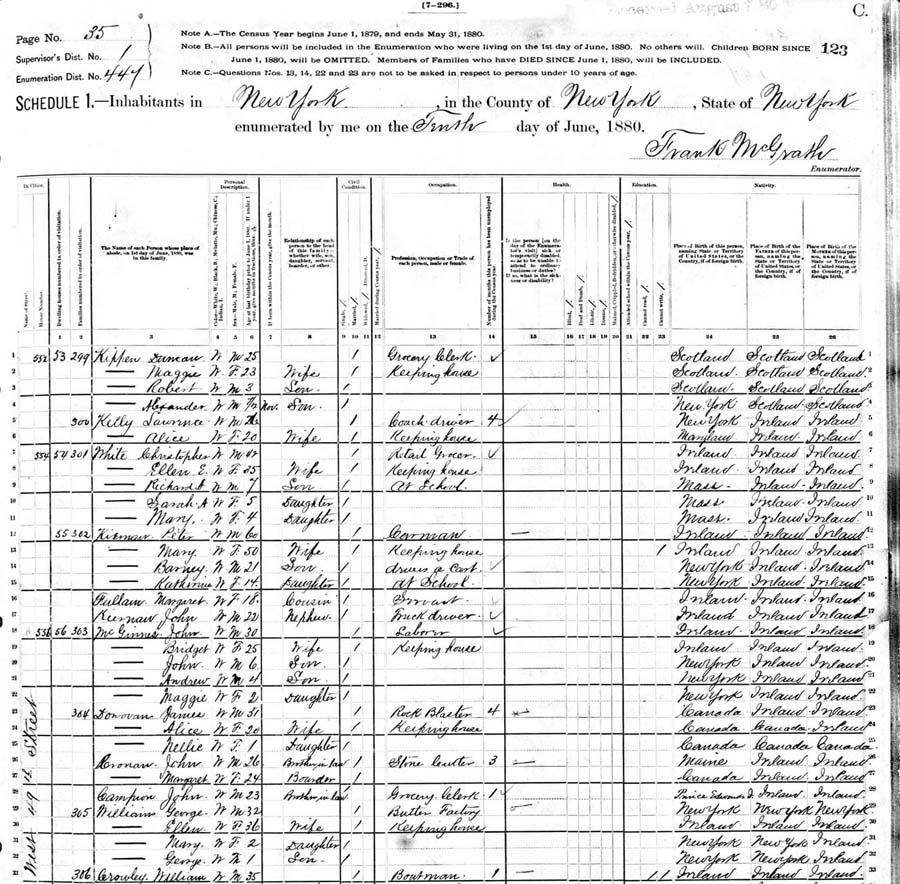 [7-296.]
C.
Page No. 35
Supervisor's Dist. No. 1
Enumeration Dist. No. 447
Note A.—The Census Year begins June 1, 1879, and ends May 31, 1880.
Note B.—All persons will be included in the Enumeration who were living on the 1st day of June, 1880. No others will. Children BORN SINCE
June 1, 1880, will be OMITTED. Members of Families who have DIED SINCE June 1, 1880, will be INCLUDED.
Note C.—Questions Nos. 13, 14, 22 and 23 are not to be asked in respect to persons under 10 years of age.
123
SCHEDULE 1.—Inhabitants in New York, in the County of New York, State of New York
enumerated by me on the Tenth day of June, 1880.
Frank McGrath
Enumerator.
In Cities. Personal Description. Civil Condition. Occupation. Health. Education. Nativity.
Name of Street.
House Number.
Dwelling houses numbered in order of visitation.
Families numbered in order of visitation.
The Name of each Person whose place of abode, on 1st day of June, 1880, was in this family.
Relationship of each person to the head of this family—whether wife, son, daughter, servant, boarder, or other.
Profession, Occupation or Trade of each person, male or female.
Place of Birth of this person, naming State or Territory of United States, or the Country, if of foreign birth.
Place of Birth of the Father of this person, naming the State or Territory of United States, or the Country, if of foreign birth.
Place of Birth of the Mother of this person, naming the State or Territory of United States, or the Country, if of foreign birth.
1 2 3 4 5 6 7 8 9 10 11 12 13 14 15 16 17 18 19 20 21 22 23 24 25 26
West 49th Street
1 552 53 299 Kippen Duncan W M 25 1 Grocery Clerk Scotland Scotland Scotland 1
2 — Maggie W F 23 Wife 1 Keeping house Scotland Scotland Scotland 2
3 — Robert W M 3 Son 1 Scotland Scotland Scotland 3
4 — Alexander W M 7/12 Nov. Son 1 New York Scotland Scotland 4
5 300 Kelly Lawrence W M 26 1 Coach driver 4 New York Ireland Ireland 5
6 — Alice W F 20 Wife 1 Keeping house Maryland Ireland Ireland 6
7 554 54 301 White Christopher W M 42 1 Retail Grocer Ireland Ireland Ireland 7
8 — Ellen E. W F 35 Wife 1 Keeping house Ireland Ireland Ireland 8
9 — Richard A W M 7 Son 1 At School Mass. Ireland Ireland 9
10 — Sarah A W F 5 Daughter 1 Mass Ireland Ireland 10
11 — Mary W F 4 Daughter 1 Mass. Ireland Ireland 11
12 55 302 Kiernan Peter W M 60 1 Carman — Ireland Ireland Ireland 12
13 — Mary W F 50 Wife 1 Keeping house 1 Ireland Ireland Ireland 13
14 — Barney W M 21 Son 1 drives a Cart New York Ireland Ireland 14
15 — Katherine W F 14 Daughter 1 At School New York Ireland Ireland 15
16 Fullam Margaret W F 18 Cousin 1 Servant Ireland Ireland Ireland 16
17 Kiernan John W M 22 Nephew 1 Truck driver Ireland Ireland Ireland 17
18 556 56 303 McGinnes John W M 30 1 Laborer Ireland Ireland Ireland 18
19 — Bridget W F 25 Wife 1 Keeping house Ireland Ireland Ireland 19
20 — John W M 6 Son 1 New York Ireland Ireland 20
21 — Andrew W M 4 Son 1 New York Ireland Ireland 21
22 — Maggie W F 2 Daughter 1 New York Ireland Ireland 22
23 304 Donovan James W M 31 1 Rock Blaster 4 — Canada Ireland Ireland 23
24 — Alice W F 20 Wife 1 Keeping house Canada Canada Ireland 24
25 — Nellie W F 1 Daughter 1 Canada Canada Canada 25
26 Cronan John W M 26 Brother in law 1 Stone Cutter 3 — Maine Ireland Ireland 26
27 — Margaret W F 24 Boarder 1 Canada Ireland Ireland 27
28 Campion John W M 23 Brother in law 1 Grocery Clerk 1 Prince Edwards I. Ireland Ireland 28
29 305 Williams George W M 32 1 Butter Factory — New York New York New York 29
30 — Ellen W F 36 Wife 1 Keeping house Ireland Ireland Ireland 30
31 — Mary W F 2 Daughter 1 New York New York Ireland 31
32 — George W M 1 Son 1 New York New York Ireland 32
33 306 Crowley William W M 35 1 Boatman 1 — 1 1 Ireland Ireland Ireland 33